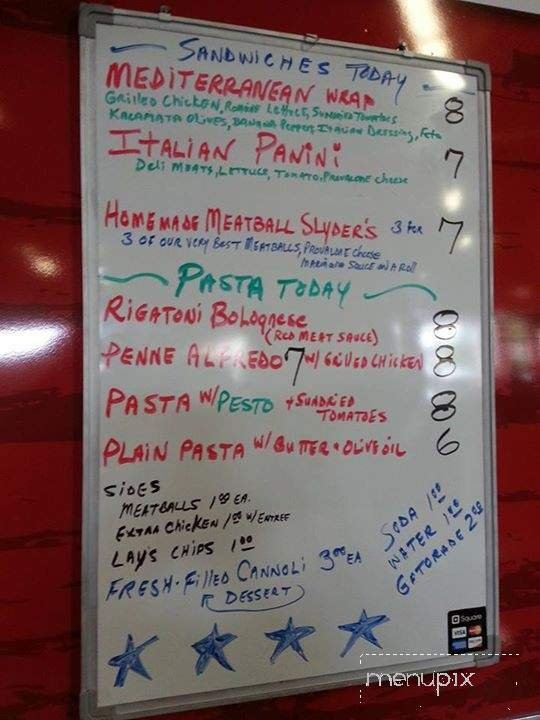 SANDWICHES TODAY
MEDITERRANEAN WRAP 8
GRILLED CHICKEN, ROMAINE LETTUCE, SUNDRIED TOMATOES
KALAMATA OLIVES, BANANA PEPPERS, ITALIAN DRESSING, Feta
ITALIAN PANINI 7
Deli MEATS, LETTUCE, TOMATO, PROVALONE cheese
HOMEMADE MEATBALL SLYDER'S 3 FOR 7
3 OF OUR VERY BEST MEATBALLS, PROVALONE cheese
MARINARA SAUCE ON A ROLL
PASTA TODAY
RIGATONI BOLOGNESE 8
(RED MEAT SAUCE)
PENNE ALFREDO 7 W/ GRILLED CHICKEN 8
PASTA W/ PESTO + SUNDRIED 8
TOMATOES
PLAIN PASTA W/ BUTTER + OLIVE OIL 6
SIDES
MEATBALLS 1.00 EA.
EXTRA CHICKEN 1.00 W/ ENTREE
LAY'S CHIPS 1.00
FRESH-FILLED CANNOLI 3.00 EA
DESSERT
SODA 1.00
WATER 1.00
GATORADE 2.00
Square
VISA
menupix